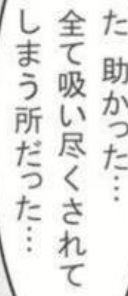 た 助かった…
全て吸い尽くされて
しまう所だった…